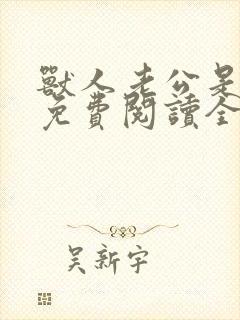 獸人老公是
免費閱讀全
吳新宇